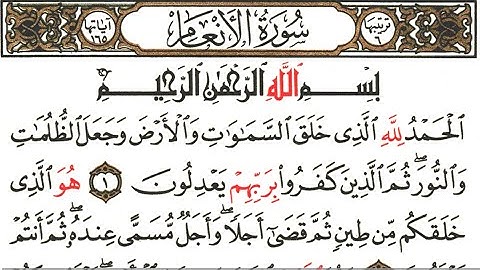 ترتيبها ٦ سُورَةُ الأَنْعَامِ آياتها ١٦٥
بِسْمِ ٱللَّهِ ٱلرَّحْمَٰنِ ٱلرَّحِيمِ
ٱلْحَمْدُ لِلَّهِ ٱلَّذِى خَلَقَ ٱلسَّمَٰوَٰتِ وَٱلْأَرْضَ وَجَعَلَ ٱلظُّلُمَٰتِ
وَٱلنُّورَ ۖ ثُمَّ ٱلَّذِينَ كَفَرُوا۟ بِرَبِّهِمْ يَعْدِلُونَ ١ هُوَ ٱلَّذِى
خَلَقَكُم مِّن طِينٍ ثُمَّ قَضَىٰٓ أَجَلًا ۖ وَأَجَلٌ مُّسَمًّى عِندَهُۥ ۖ ثُمَّ أَنتُمْ